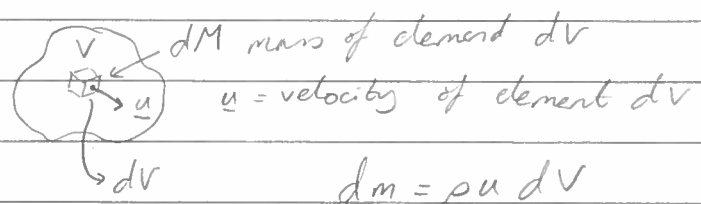 V dM mass of element dV
u̲ u̲ = velocity of element dV
dV dm = ρu dV